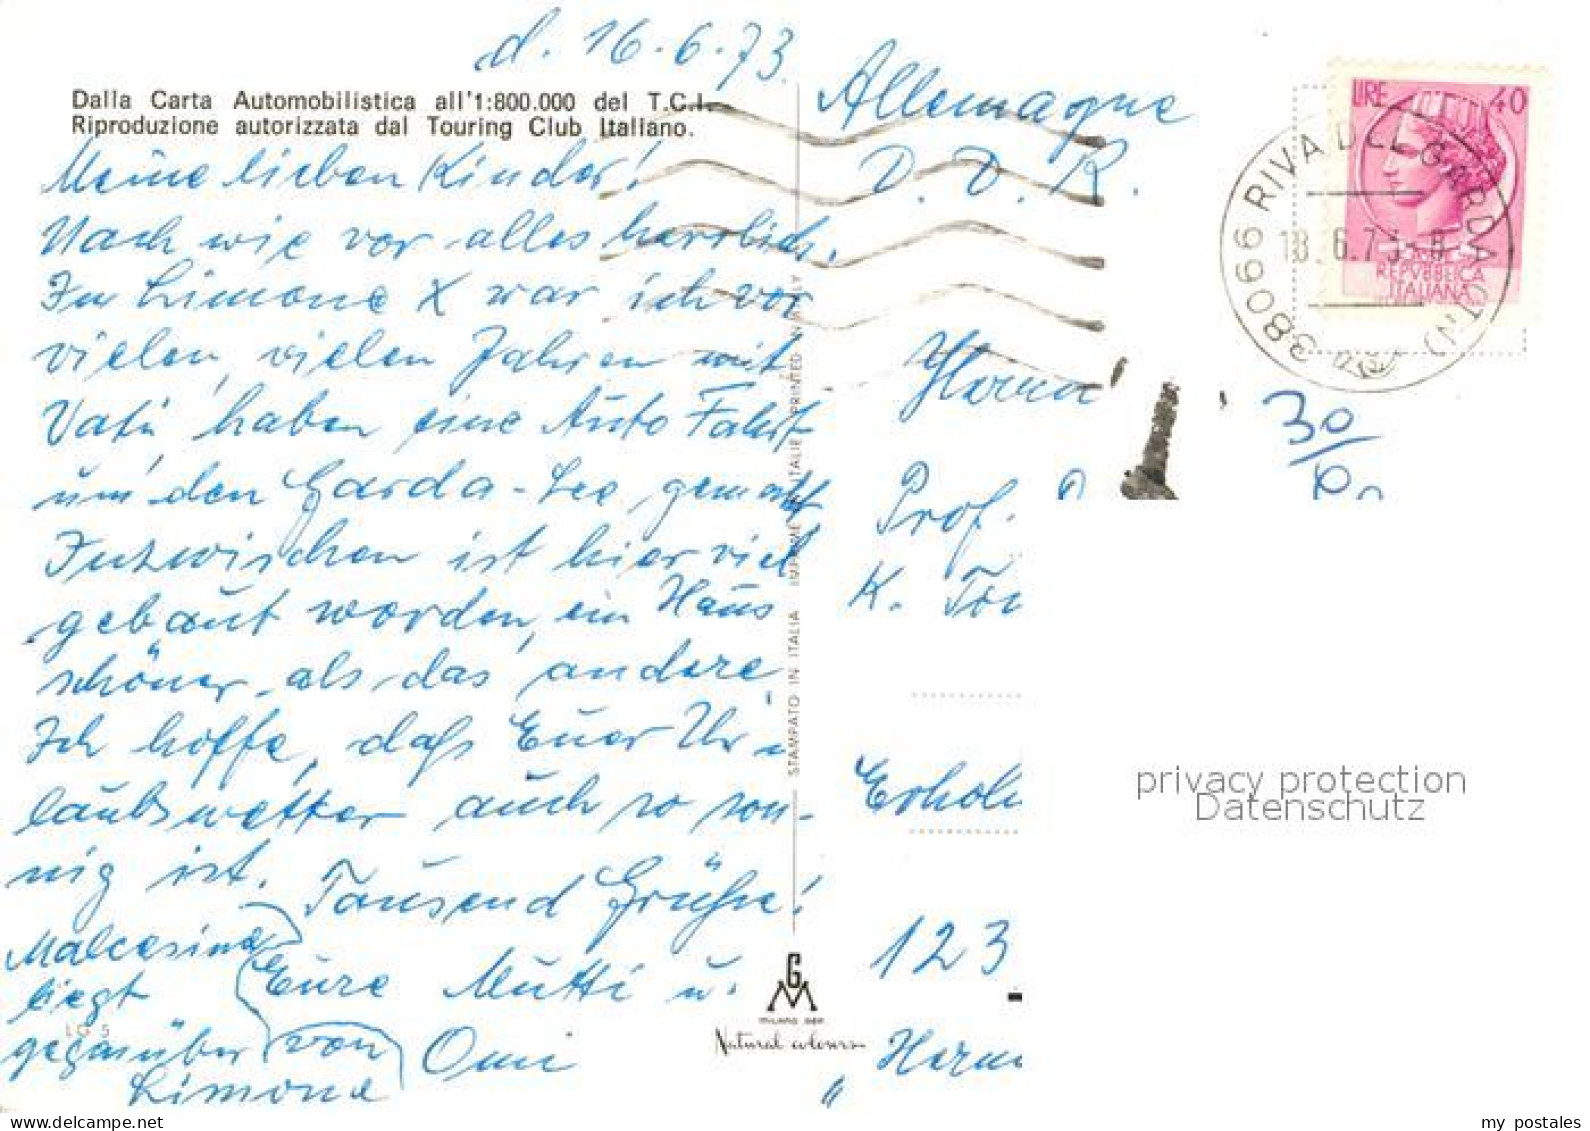 d. 16.6.73.
Dalla Carta Automobilistica all'1:800.000 del T.C.I.
Riproduzione autorizzata dal Touring Club Italiano.
Meine lieben Kinder!
Nach wie vor alles herrlich.
In Limone X war ich vor
vielen, vielen Jahren mit
Vati, haben eine Auto Fahrt
um den Garda-See gemacht
Inzwischen ist hier viel
gebaut worden, ein Haus
schöner als das andere.
Ich hoffe, daß Euer Ur-
laubswetter auch so son-
nig ist.
Tausend Grüße!
Eure Mutti u.
Omi
Malcesine
liegt
gegenüber von
Limone
LG 5
STAMPATO IN ITALIA IMPRIMÉ EN ITALIE PRINTED IN ITALY
GM
MILANO DEP.
Natural colours
Allemagne
D. D. R.
LIRE 40
REPVBBLICA
ITALIANA
38066 RIVA DEL GARDA (TN)
18.6.73-8
30/
Herrn
Prof.
K.
Erhol
123
"Herm
privacy protection
Datenschutz
my postales